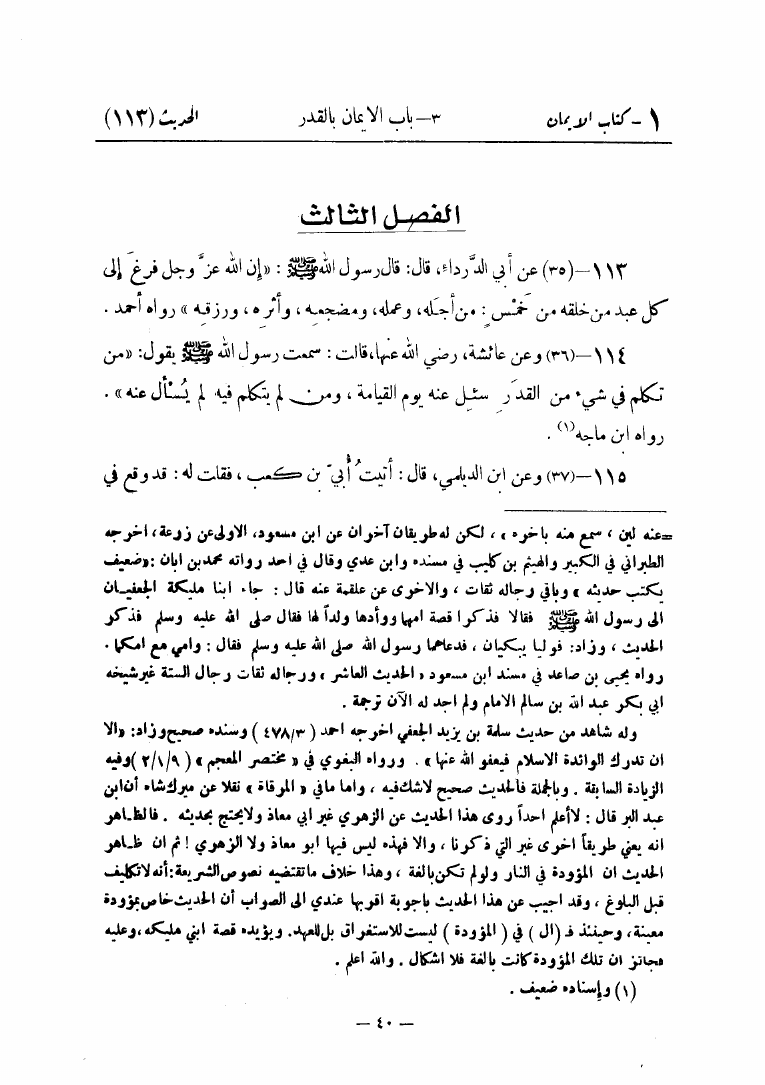 ١ - كتاب الايمان ٣ - باب الايمان بالقدر الحديث (١١٣)
الفصل الثالث
١١٣ - (٣٥) عن أبي الدَّرداء، قال: قال رسول الله ﷺ : «إن الله عزَّ وجل فرغَ إلى
كل عبد من خلقه من خَمْسٍ : من أجَله، وعمله، ومضجعه، وأثره، ورزقه » رواه أحمد .
١١٤ - (٣٦) وعن عائشة، رضي الله عنها، قالت : سمعت رسول الله ﷺ يقول: «من
تكلم في شيء من القدَرِ سئل عنه يوم القيامة ، ومن لم يتكلم فيه لم يُسْأل عنه» .
رواه ابن ماجه(١) .
١١٥ - (٣٧) وعن ابن الديلمي، قال : أتيتُ أُبيّ بن كعب ، فقلت له : قد وقع في
=عنه لين ، سمع منه باخوه » ، لكن له طريقان آخران عن ابن مسعود، الاولى عن زرعة، اخرجه
الطبراني في الكبير والهيثم بن كليب في مسنده وابن عدي وقال في احد رواته محمد بن ابان :«ضعيف
يكتب حديثه » وباقي رجاله ثقات ، والاخرى عن علقمة عنه قال : جاء ابنا مليكة الجعفيان
الى رسول الله ﷺ فقالا فذكرا قصة امها ووأدها ولداً لها فقال صلى الله عليه وسلم فذكر
الحديث ، وزاد: فوليا يبكيان ، فدعاهما رسول الله صلى الله عليه وسلم فقال : وامي مع امكما .
رواه يحيى بن صاعد في مسند ابن مسعود « الحديث العاشر » ورجاله ثقات رجال الستة غير شيخه
ابي بكر عبد الله بن سالم الامام ولم اجد له الآن ترجمة .
وله شاهد من حديث سلمة بن يزيد الجعفي اخرجه احمد ( ٤٧٨/٣ ) وسنده صحيح وزاد: «الا
ان تدرك الوائدة الاسلام فيعفو الله عنها» . ورواه البغوي في « مختصر المعجم » ( ٢/١/٩ ) وفيه
الزيادة السابقة . وبالجملة فالحديث صحيح لاشك فيه ، واما مافي « المرقاة » نقلا عن ميرك شاه أن ابن
عبد البر قال : لا أعلم احداً روى هذا الحديث عن الزهري غير ابي معاذ ولا يحتج بحديثه . فالظاهر
انه يعني طريقاً اخرى غير التي ذكرنا ، والا فهذه ليس فيها ابو معاذ ولا الزهري ! ثم ان ظاهر
الحديث ان المؤودة في النار ولو لم تكن بالغة ، وهذا خلاف ما تقتضيه نصوص الشريعة: أنه لا تكليف
قبل البلوغ ، وقد اجيب عن هذا الحديث باجوبة اقربها عندي الى الصواب أن الحديث خاص بمؤودة
معينة، وحينئذ فـ (ال ) في ( المؤودة ) ليست للاستغراق بل للعهد. ويؤيده قصة ابني مليكه، وعليه
فجائز ان تلك المؤودة كانت بالغة فلا اشكال . والله اعلم .
(١) وإسناده ضعيف .
— ٤٠ —